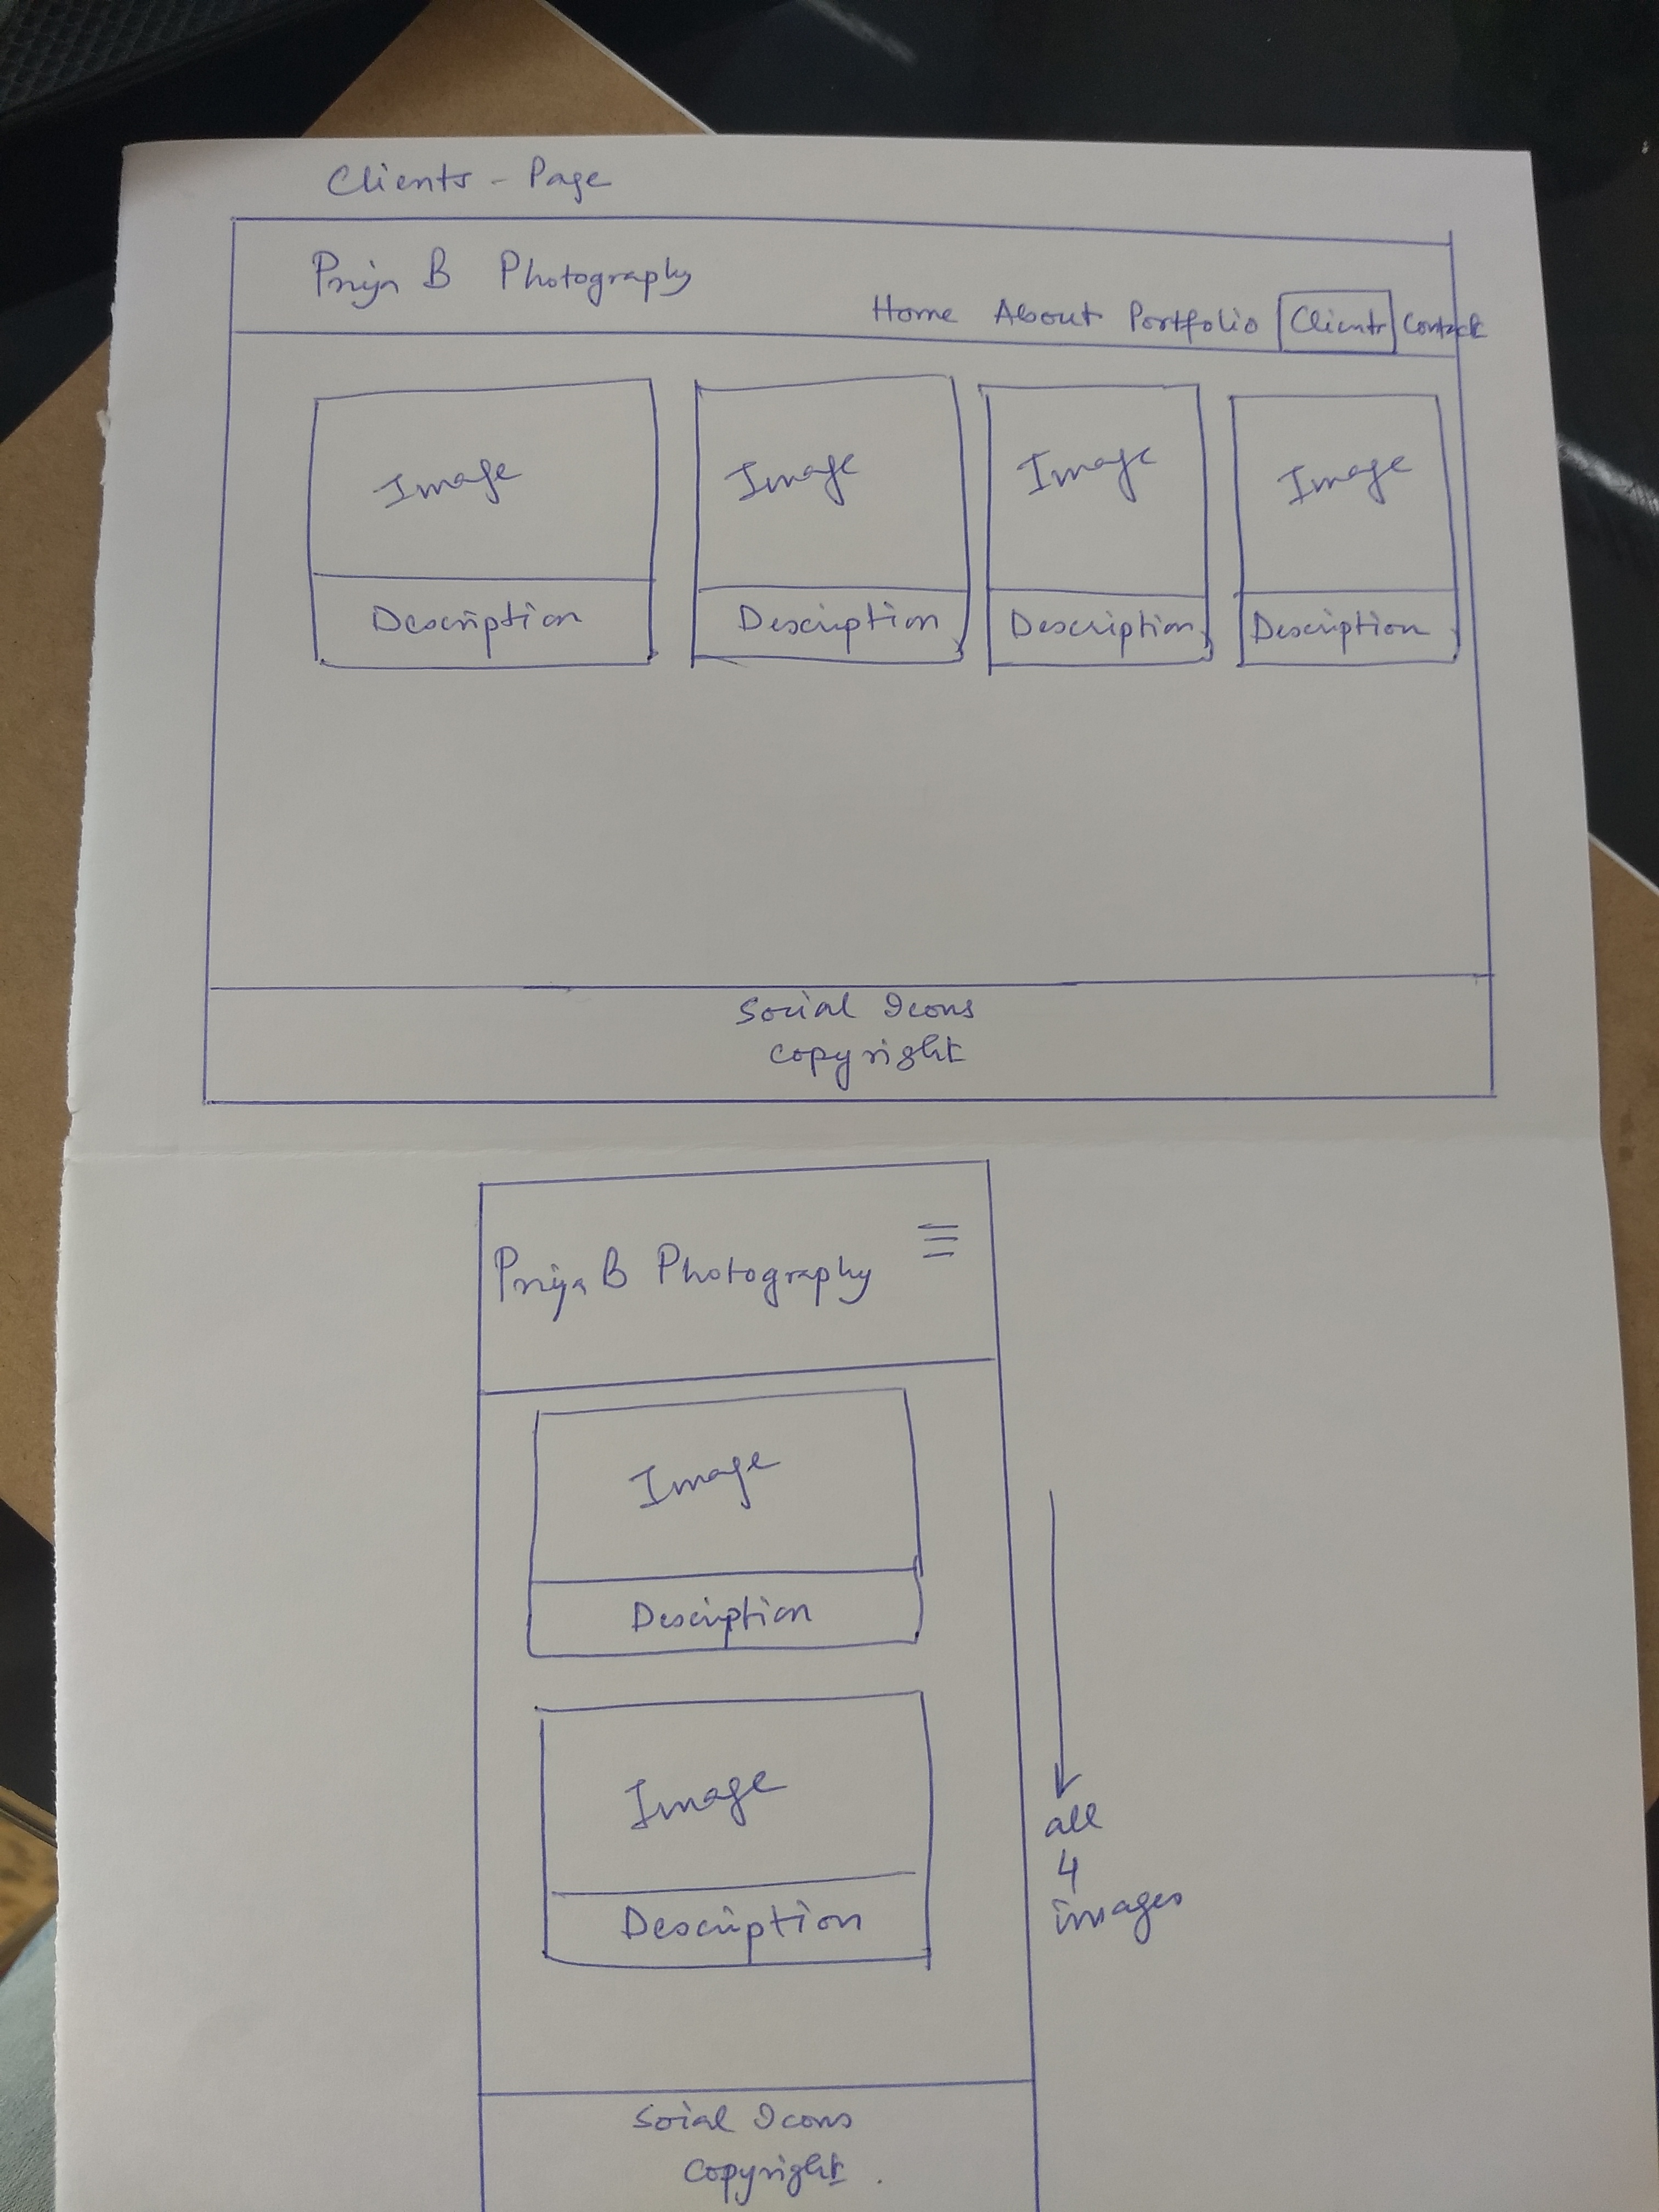 Clients - Page
Priya B Photography
Home About Portfolio Clients Contact
Image Image Image Image
Description Description Description Description
Social Icons
Copyright
Priya B Photography
Image
Description
Image
Description
all
4
images
Soial Icons
Copyright.